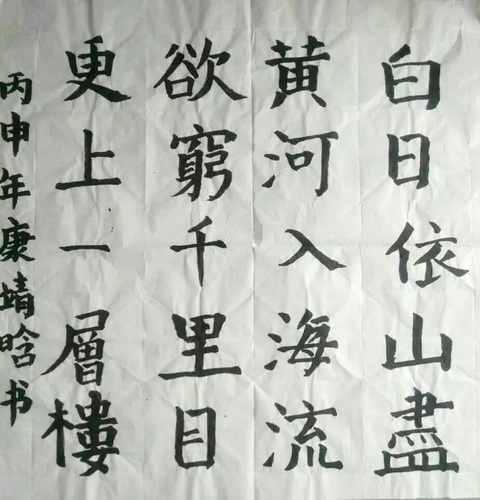 白日依山盡
黄河入海流
欲窮千里目
更上一層樓
丙申年康靖晗书